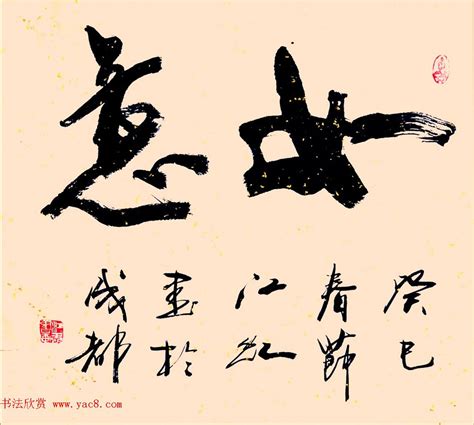 如意
癸巳
春节
江红
书于
成都
书法欣赏 www.yac8.com